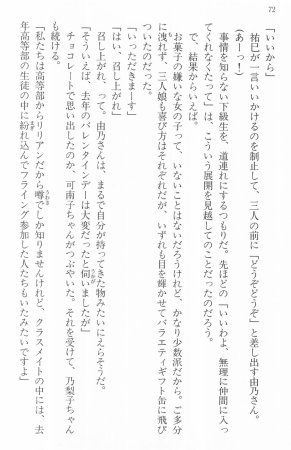 72
「いいから」
祐巳が一言いいかけるのを制止して、三人の前に「どうぞどうぞ」と差し出す由乃さん。
(あーっ！)
事情を知らない下級生を、道連れにするつもりだ。先ほどの「いいわよ、無理に仲間に入っ
てくれなくたって」は、こういう展開を見越してのことだったのだろう。
で、結果からいえば。
お菓子の嫌いな女の子って、いないことはないだろうけれど、かなり少数派だから。ご多分
に洩れず、三人娘も喜び方はそれぞれだが、いずれも目を輝かせてバラエティギフト缶に飛び
ついたのだった。
「いっただきまーす」
「はい、召し上がれ」
召し上がれ、って。由乃さんは、まるで自分が持ってきた物みたいにえらそうだ。
「そういえば、去年のバレンタインデーは大変だったと伺いましたが」
チョコレートで思い出したのか、可南子ちゃんがつぶやいた。それを受けて、乃梨子ちゃん
も続ける。
「私たちは高等部からリリアンだから噂でしか知りませんけれど、クラスメイトの中には、去
年高等部の生徒の中に紛れ込んでフライング参加した人たちもいたみたいですよ」